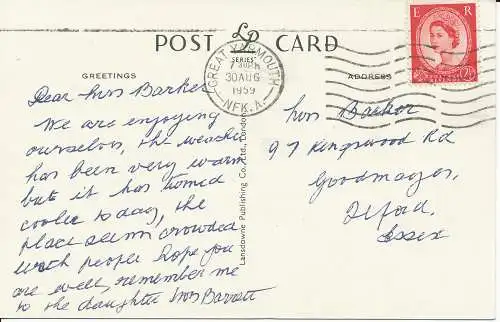 POST CARD
LP
SERIES
GREETINGS
ADDRESS
GREAT YARMOUTH
30 AUG
1959
NFK.A
E R
2½
Dear Mrs Barker
We are enjoying
ourselves, the weather
has been very warm
but it has turned
cooler to day, the
place seems crowded
with people hope you
are well, remember me
to the daughter Mrs Barrett
Lansdowne Publishing Co., Ltd., London
Mrs Barker
97 Kingswood Rd
Goodmayes,
Ilford,
Essex